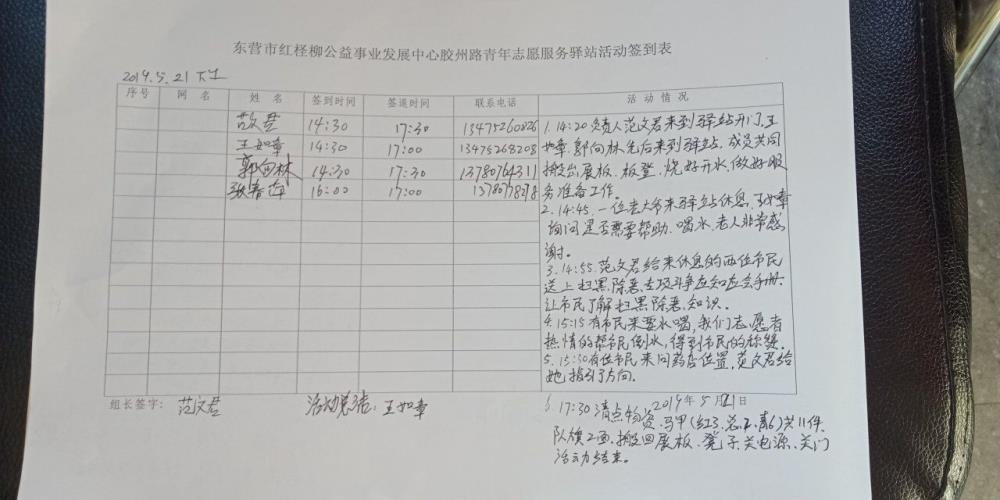 东营市红柽柳公益事业发展中心胶州路青年志愿服务驿站活动签到表
2019.5.21 下午
序号 网名 姓名 签到时间 签退时间 联系电话 活动情况
范文君 14:30 17:30 13475260826
王如章 14:30 17:00 13475268208
郭向林 14:30 17:30 13780764311
16:00 17:00
1. 14:20负责人范文君来到驿站开门,王
如章、郭向林先后来到驿站,成员共同
搬出展板、板登、烧好开水,做好服
务准备工作。
2. 14:45.一位老大爷来驿站休息,王如章
询问是否需要帮助、喝水,老人非常感
谢。
3. 14:55.范文君给来休息的两位市民
送上扫黑除恶专项斗争应知应会手册.
让市民了解扫黑除恶知识。
4. 15:15有市民来要水喝,我们志愿者
热情的帮市民倒水,得到市民的称赞.
5. 15:30有位市民来问药店位置,范文君给
她指引了方向.
组长签字: 范文君 活动总结:王如章 2019年5月21日
6. 17:30清点物资.马甲(红3.总2.青6)共11件.
队旗2面.搬回展板、凳子、关电源、关门
活动结束。